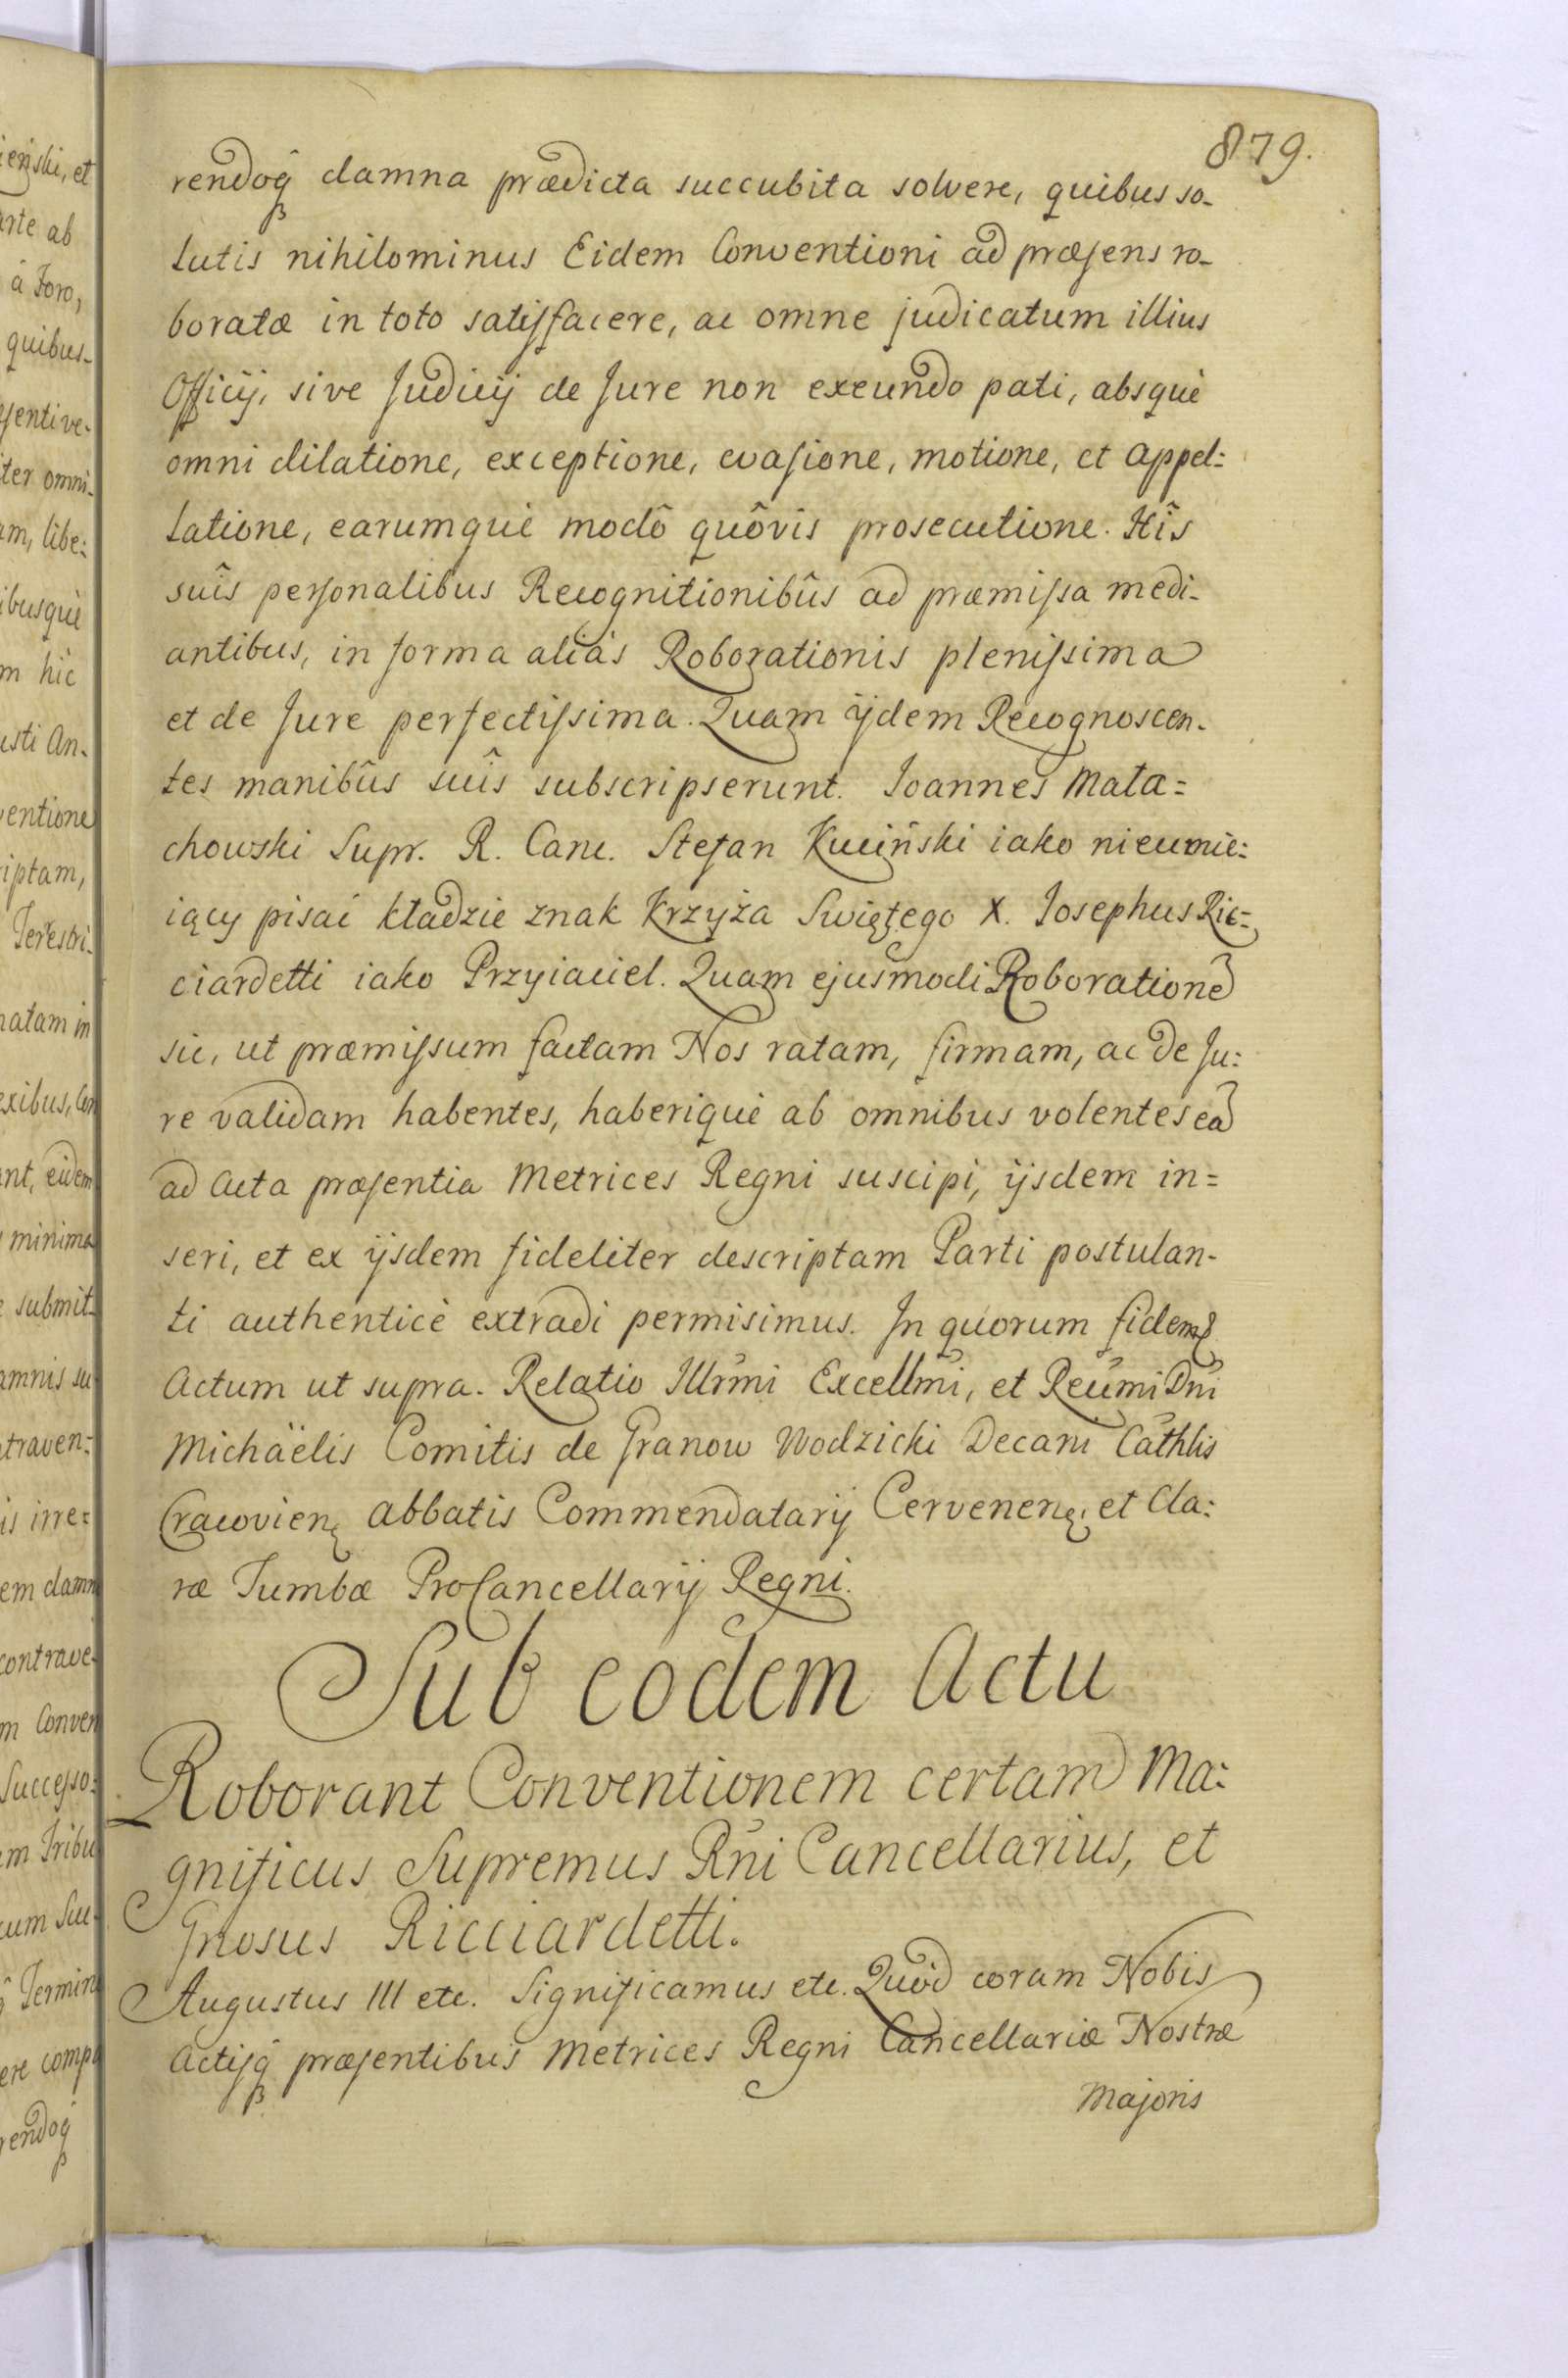 879.
rendoq̃ damna prædicta succubita solvere, quibus so-
lutis nihilominus Eidem Conventioni ad præsens ro-
boratæ in toto satisfacere, ac omne judicatum illius
Officij, sive Judicij de Jure non exeundo pati, absquè
omni dilatione, exceptione, evasione, motione, et Appel:
latione, earumquè modô quôvis prosecutione. Hîs
suîs personalibus Recognitionibûs ad præmissa medi-
antibus, in forma aliàs Roborationis plenissima
et de Jure perfectissima. Quam ijdem Recognoscen-
tes manibûs suîs subscripserunt. Joannes Mała=
chowski Supr. R. Canc. Stefan Kuciński iako nieumie:
iący pisać kładzie znak Krzyża Swiętego X. Josephus Ric=
ciardetti iako Przyiaciel. Quam ejusmodi Roboratione͠
sic, ut præmissum factam Nos ratam, firmam, ac de Ju:
re validam habentes, haberiquè ab omnibus volentes ea͠
ad Acta præsentia Metrices Regni suscipi, ijsdem in=
seri, et ex ijsdem fideliter descriptam Parti postulan-
ti authenticè extradi permisimus. In quorum fidem
Actum ut supra. Relatio Illr̃mi Excellm̃i, et Reũmi Dñi
Michäelis Comitis de Granow Wodzicki Decani Cathlis
Cracovien̨ Abbatis Commendatarij Cervenen̨, et Cla:
ræ Tumbæ ProCancellarij Regni.
Sub eodem Actu
Roborant Conventionem certam Ma:
gnificus Supremus Rñi Cancellarius, et
Gnosus Ricciardetti.
Augustus III etc. Significamus etc. Quòd coram Nobis
Actisq̃ præsentibus Metrices Regni Cancellariæ Nostræ
Majoris
ieński, et
arte ab
à Foro,
quibus-
esenti ve-
iter omni-
am, libe:
ibusquè
m hîc
usti An-
ventione
riptam,
Terestri-
natam in
exibus, Con
ant, eidem
minima
e submit-
amnis su
traven:
is irre=
em damn
contrave-
m Conven
Successo:
am Tribu
cum Suc-
q̃ Termin
ere comp
rendoq̃